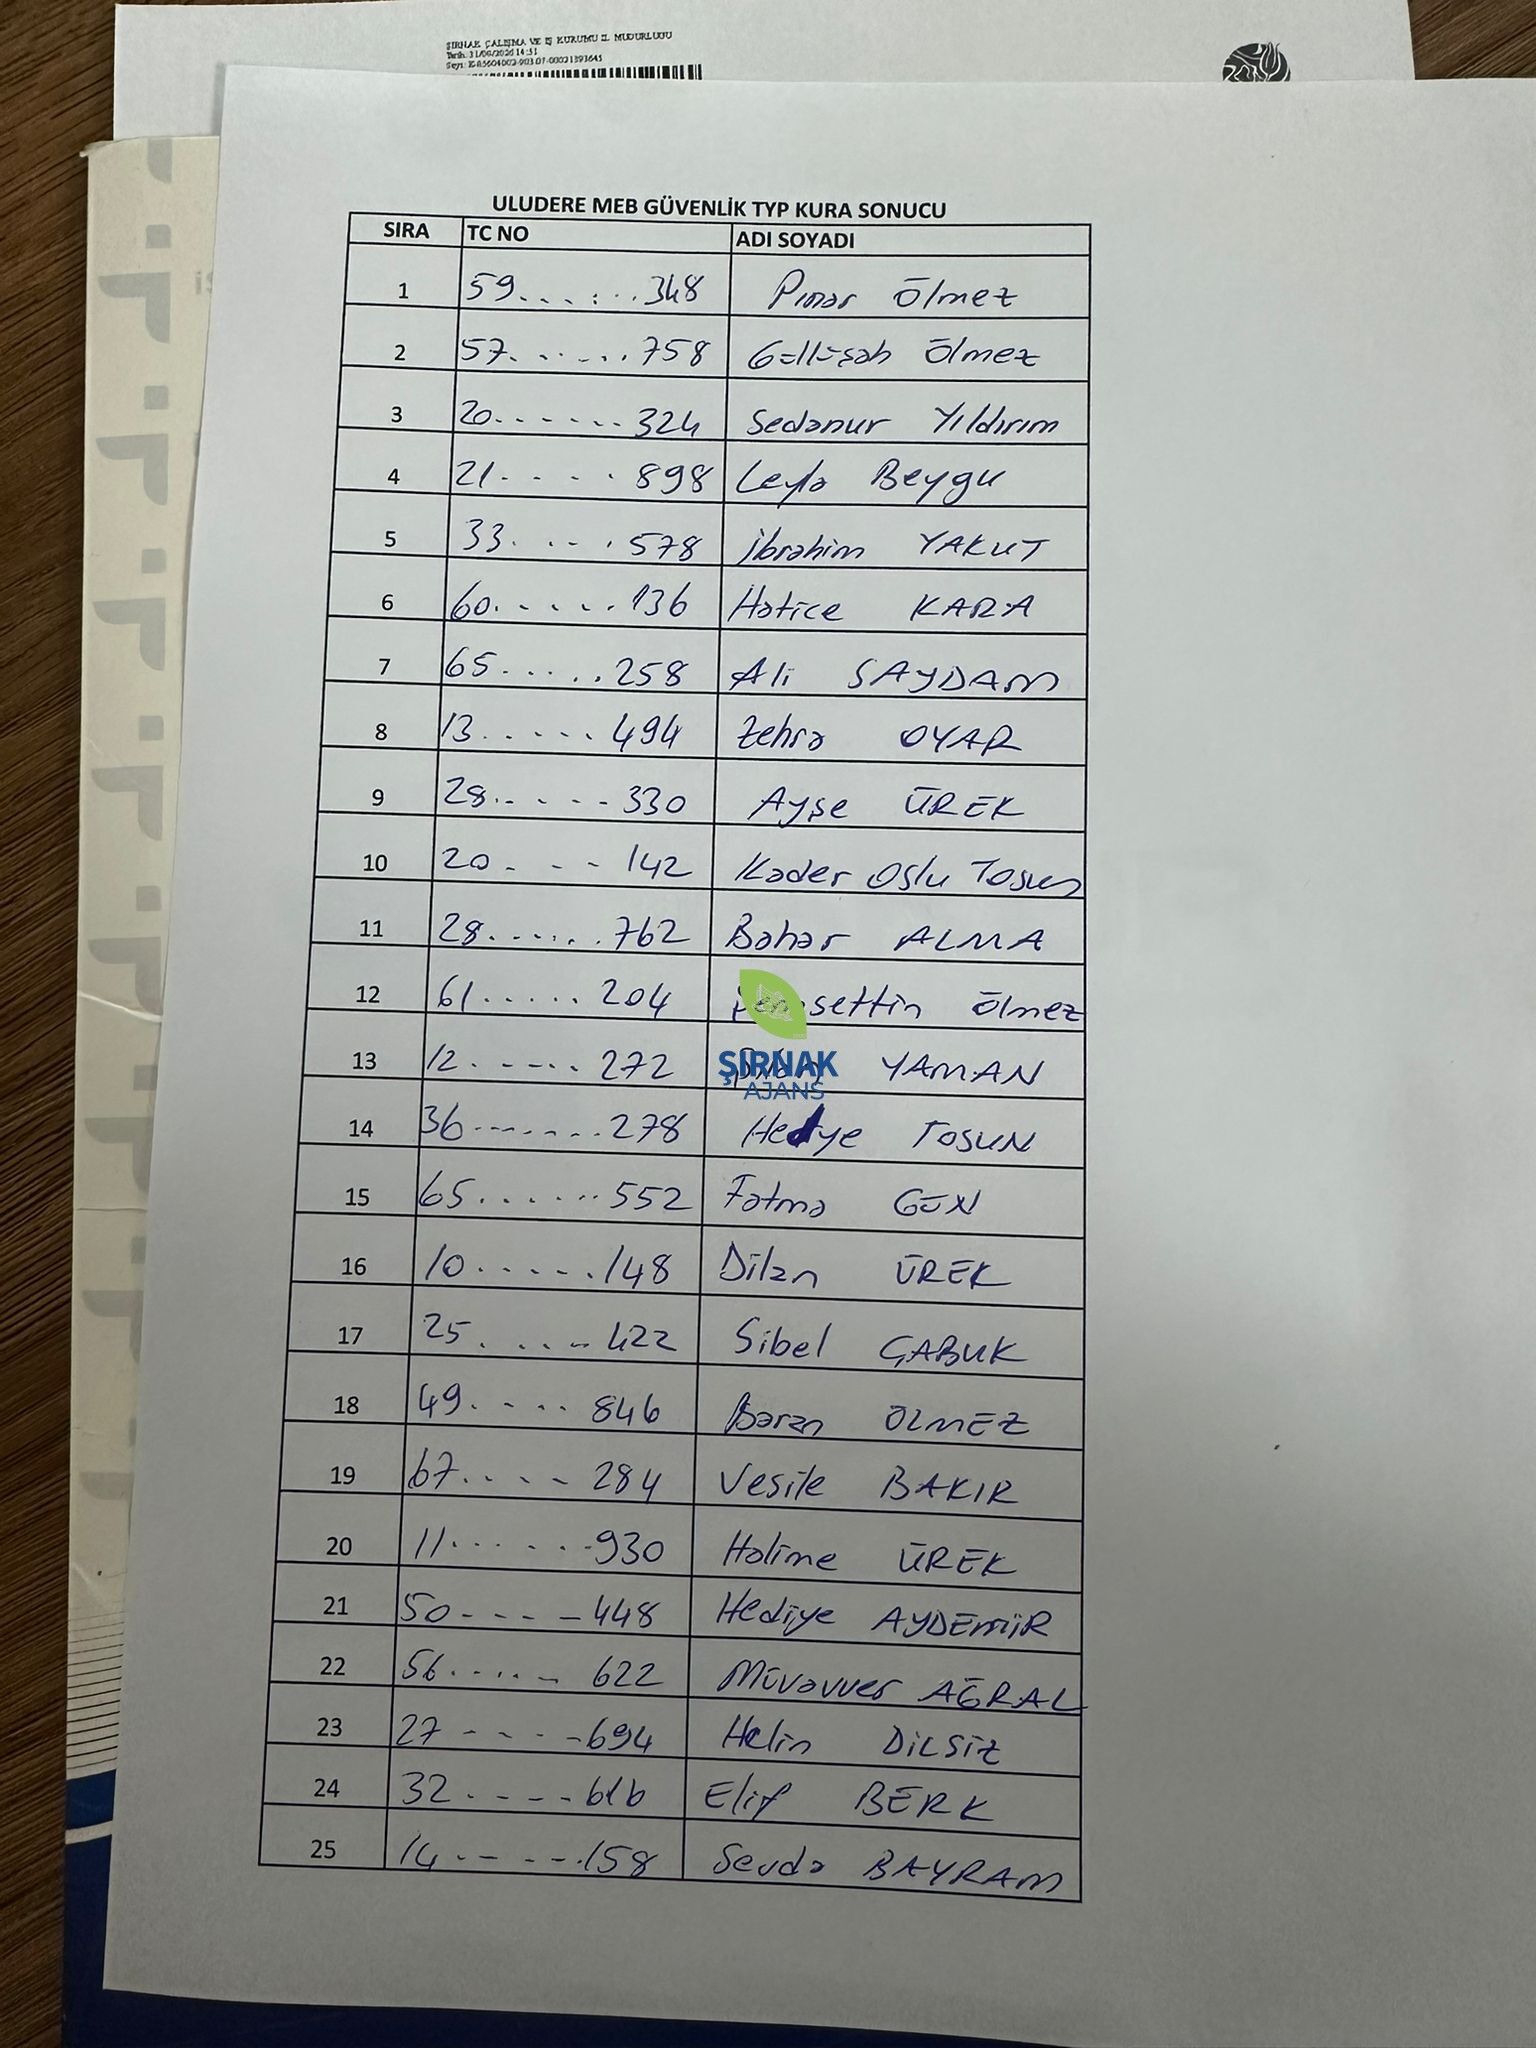 ŞIRNAK ÇALIŞMA VE İŞ KURUMU İL MÜDÜRLÜĞÜ
Tarih: 31/08/2026 14:51
Sayı: E-85604002-903.07-00021393645
ULUDERE MEB GÜVENLİK TYP KURA SONUCU
SIRA TC NO ADI SOYADI
1 59......348 Pınar Ölmez
2 57......758 Güllüşah Ölmez
3 20......324 Sedanur Yıldırım
4 21.....898 Leyla Beygu
5 33.....578 İbrahim YAKUT
6 60......136 Hatice KARA
7 65......258 Ali SAYDAM
8 13......494 Zehra OYAR
9 28.....330 Ayşe ÜREK
10 20...142 Kader Oslu Tosun
11 28......762 Bahar ALMA
12 61......204 Şemsettin Ölmez
13 12......272 YAMAN
ŞIRNAK
AJANS
14 36.......278 Hediye TOSUN
15 65.......552 Fatma GÜN
16 10......148 Dilan ÜREK
17 25.....422 Sibel ÇABUK
18 49....846 Baran ÖLMEZ
19 67.....284 Vesile BAKIR
20 11.......930 Halime ÜREK
21 50-----448 Hediye AYDEMİR
22 56......622 Müvavver AĞRAL
23 27-----694 Helin DİLSİZ
24 32.....616 Elif BERK
25 14......158 Sevda BAYRAM